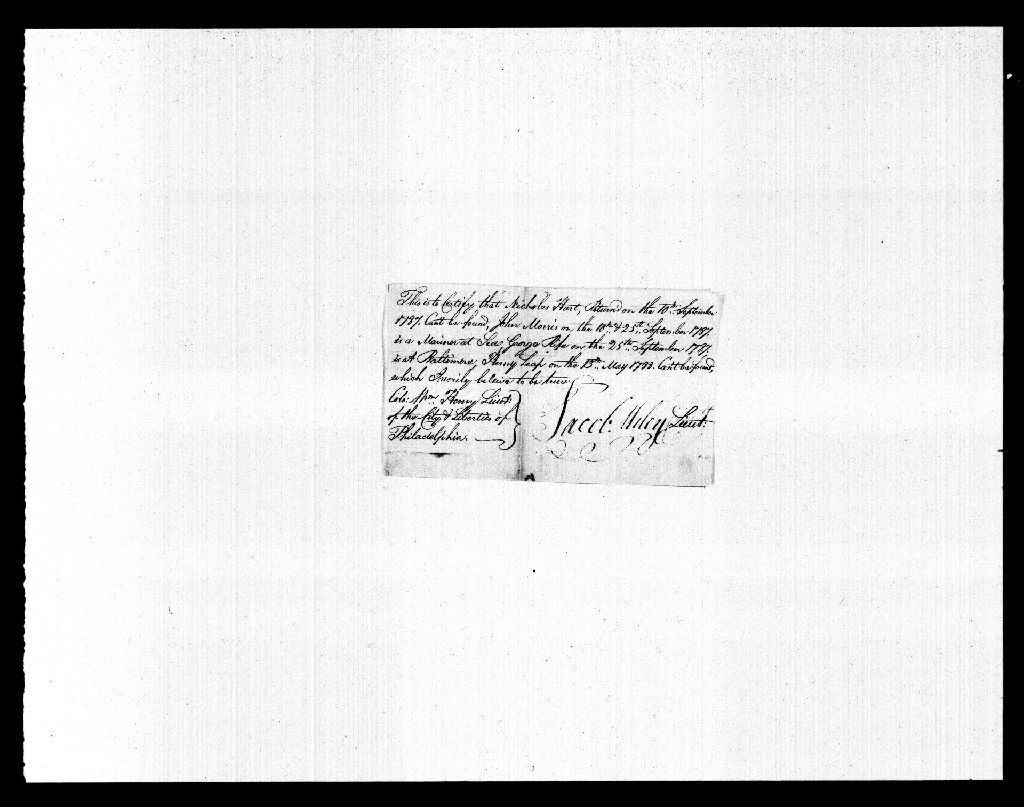 This is to Certify that Nicholas Hart, Return'd on the 10th September
1787. Cant be found, John Morris on the 10th & 25th September 1787.
is a Mariner at Sea, George Rose on the 25th September 1787.
is at Baltimore, Henry Leap on the 15th May 1788. Can't be found,
which I verily beleive to be true
Colo. Wm. Henry Lieut.
of the City & Liberties of
Philadelphia.
Jacob Lieut.